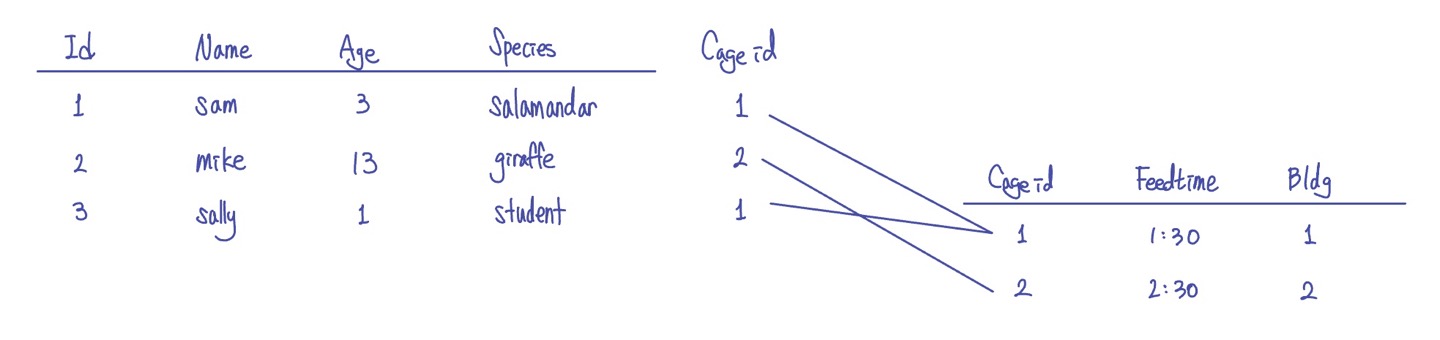 Id Name Age Species Cage id
1 sam 3 salamandar 1
2 mike 13 giraffe 2
3 sally 1 student 1
Cage id Feedtime Bldg
1 1:30 1
2 2:30 2